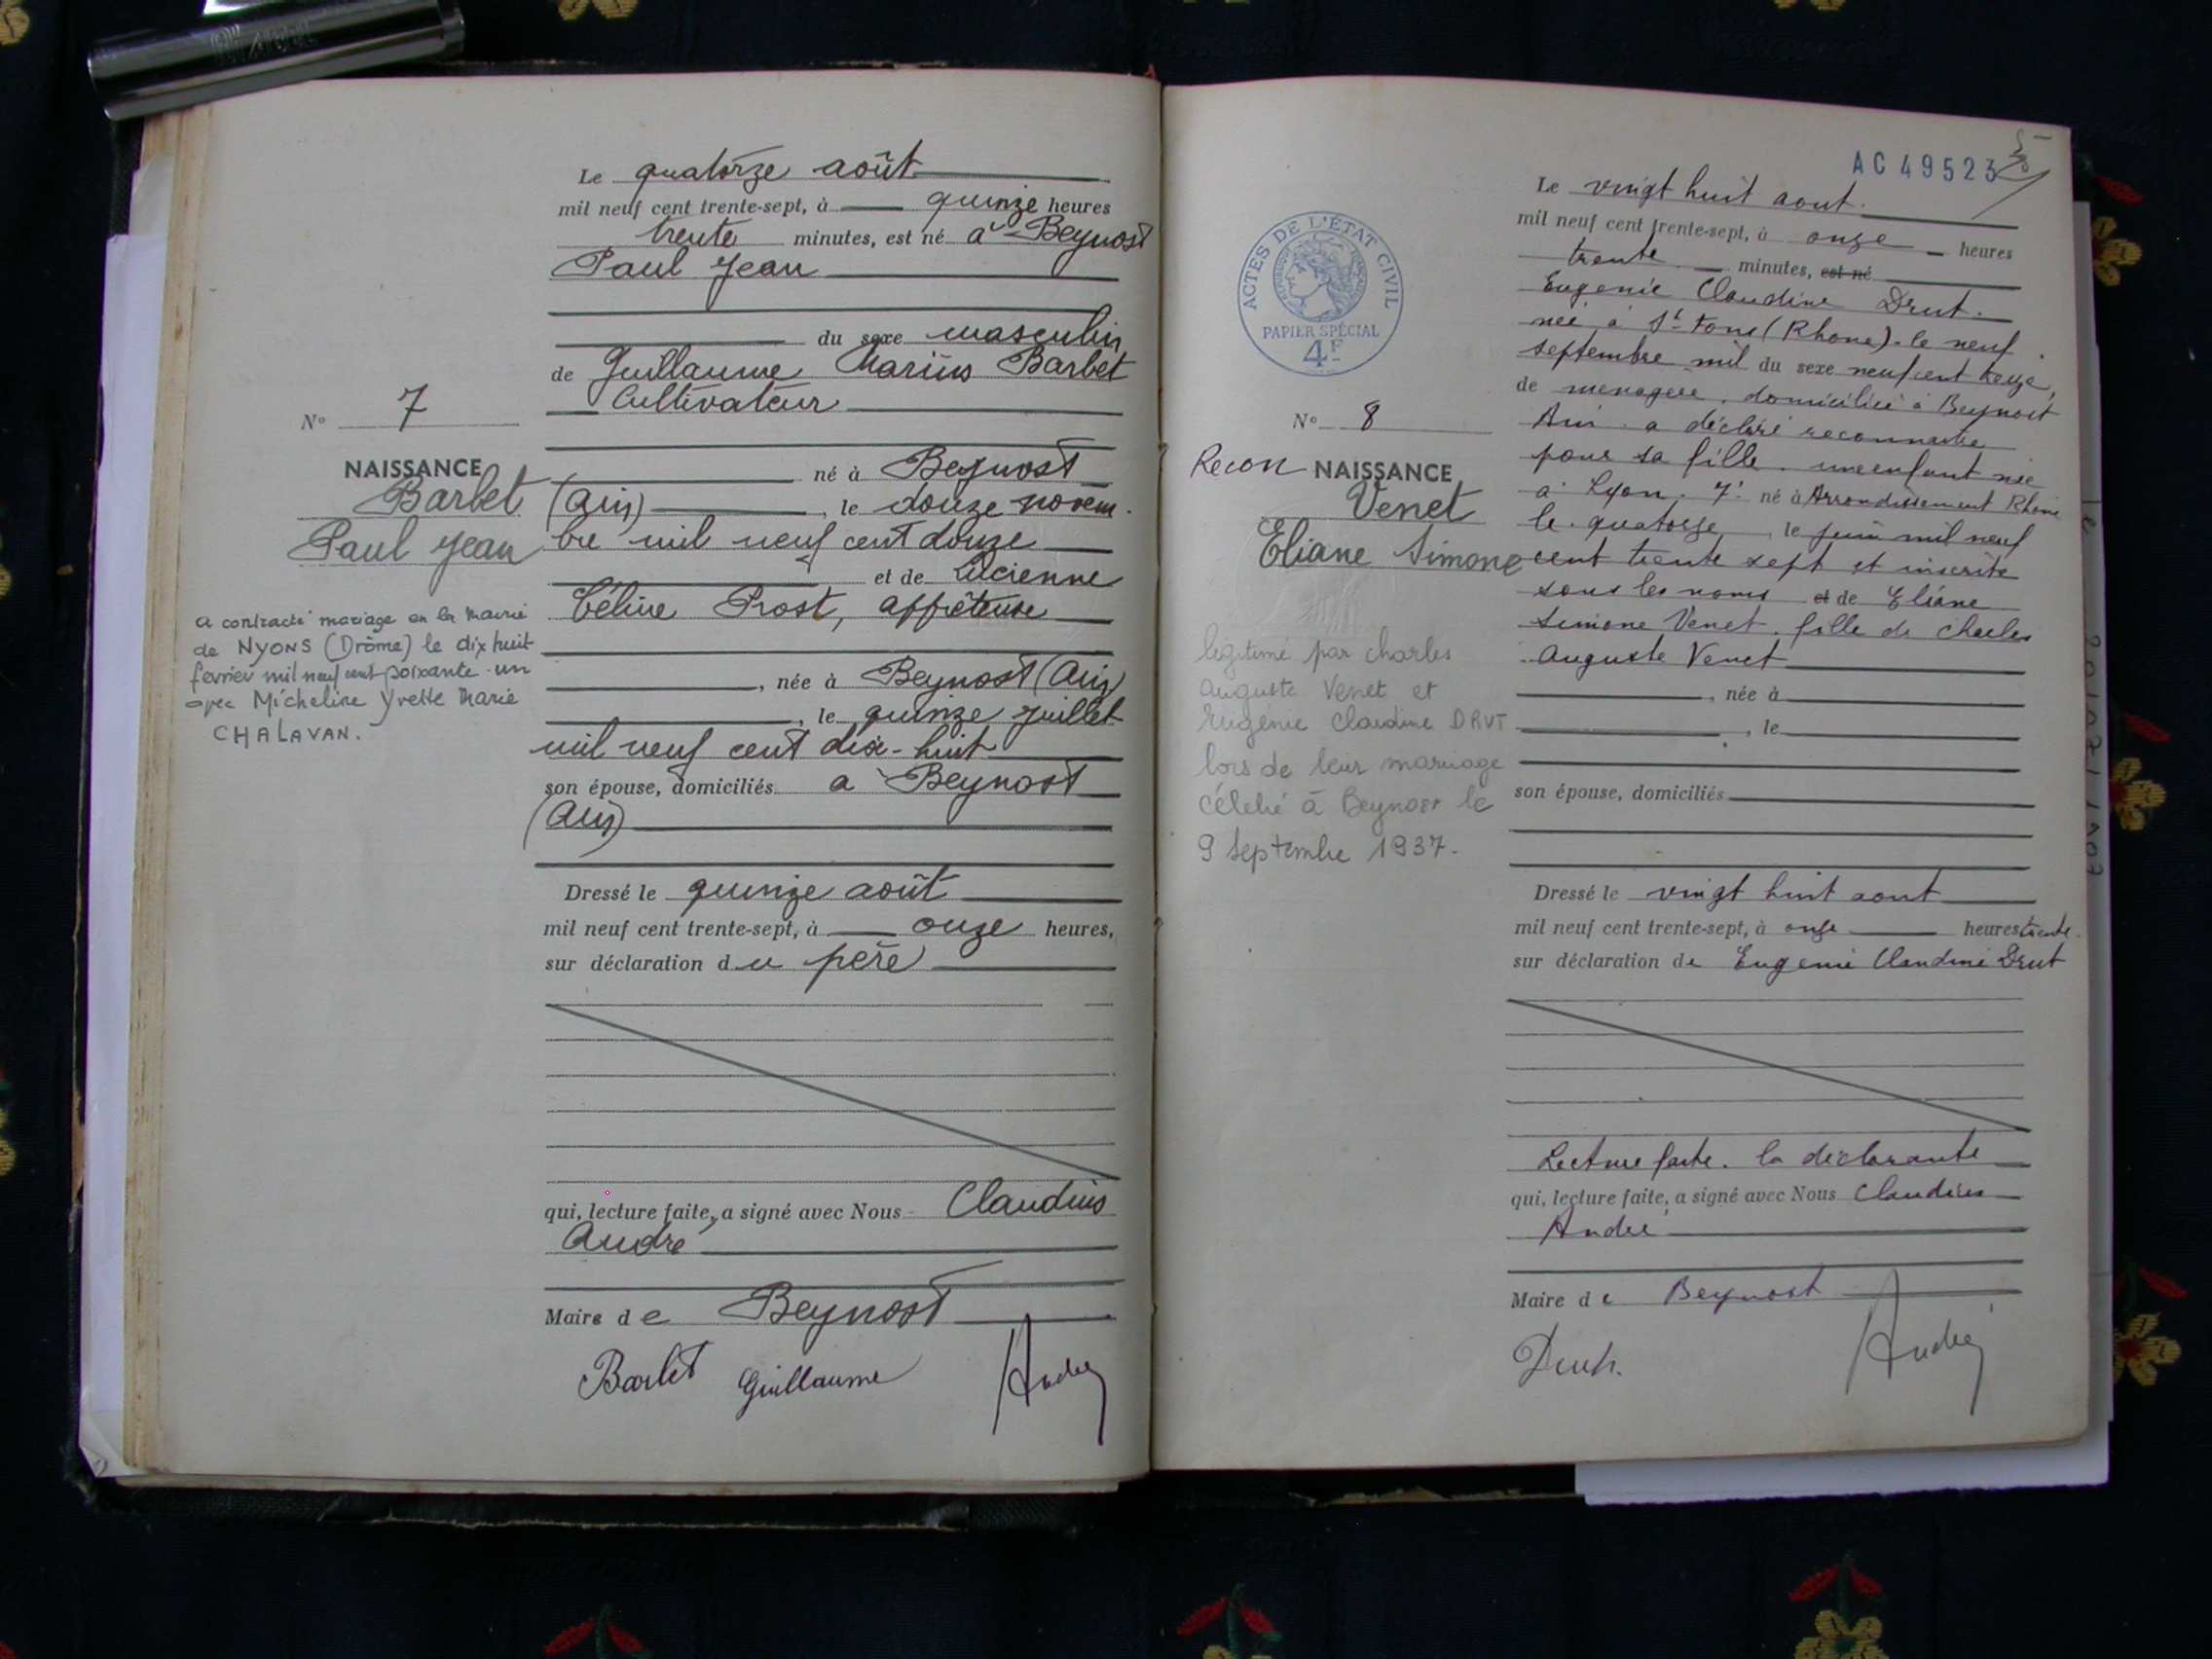 Le quatorze août
mil neuf cent trente-sept, à quinze heures
trente minutes, est né à Beynost
Paul Jean
du sexe masculin
de Guillaume Marius Barbet
Cultivateur
N° 7
NAISSANCE
Barbet
Paul Jean
né à Beynost
(Ain), le douze novem-
bre mil neuf cent douze
et de Lucienne
Céline Prost, affrêteuse
a contracté mariage en la mairie
de NYONS (Drôme) le dix huit
février mil neuf cent soixante-un
avec Micheline Yvette Marie
CHALAVAN.
, née à Beynost (Ain)
, le quinze juillet
mil neuf cent dix-huit
son épouse, domiciliés à Beynost
(Ain)
Dressé le quinze août
mil neuf cent trente-sept, à onze heures,
sur déclaration du père
qui, lecture faite, a signé avec Nous Claudius
André
Maire de Beynost
Barbet Guillaume André
AC 49523
ACTES DE L'ÉTAT CIVIL
PAPIER SPÉCIAL
4F
Le vingt huit aout.
mil neuf cent trente-sept, à onze heures
trente minutes, est né
Eugenie Claudine Drut.
née à St Fons (Rhone). le neuf
septembre mil du sexe neuf cent treize,
de menagère, domiciliée à Beynost
Ain a déclaré reconnaitre
pour sa fille. une enfant née
à Lyon. 7e né à Arrondissement Rhone
le quatorze, le juin mil neuf
cent trente sept et inscrite
sous les noms et de Eliane
Simone Venet. fille de Charles
Auguste Venet
N° 8
Recon NAISSANCE
Venet
Eliane Simone
legitimé par charles
auguste Venet et
Eugénie Claudine DRUT
lors de leur mariage
célébré à Beynost le
9 septembre 1937.
, née à
, le
son épouse, domiciliés
Dressé le vingt huit aout
mil neuf cent trente-sept, à onze heures trente.
sur déclaration de Eugenie Claudine Drut
Lecture faite. la déclarante
qui, lecture faite, a signé avec Nous Claudius
André
Maire de Beynost
Drut. André